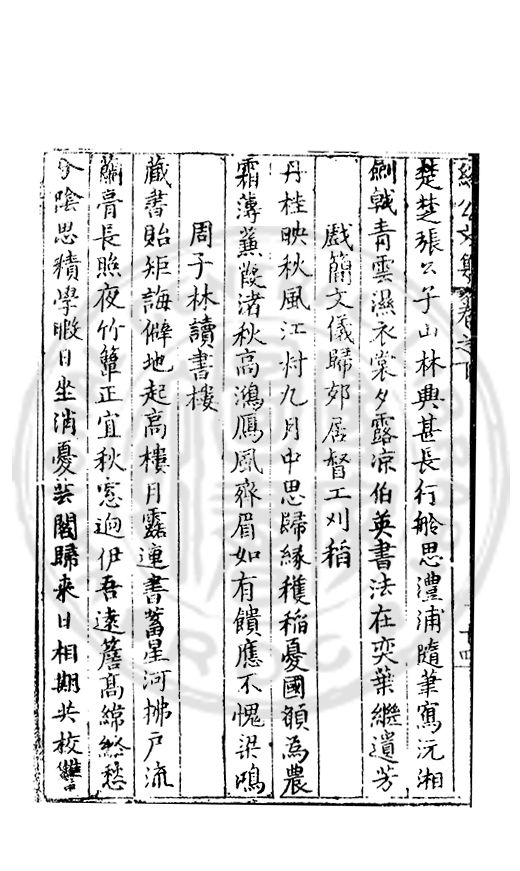 公文集卷之下
楚楚張公子山林興甚長行舲思澧浦隨筆寫沅湘
劍戟青雲濕衣裳夕露凉伯英書法在奕葉繼遺芳
戲簡文儀歸郊居督工刈稻
丹桂映秋風江村九月中思歸緣穫稻憂國願為農
霜薄蒹葭渚秋高鴻鴈風齊眉如有饋應不愧梁鴻
周子林讀書樓
藏書貽矩誨僻地起高樓月露運書蓄星河拂戶流
蘭膏長照夜竹簟正宜秋窓迥伊吾遠簷高綿絡愁
分陰思積學暇日坐消憂芸閣歸來日相期共校讐
十四